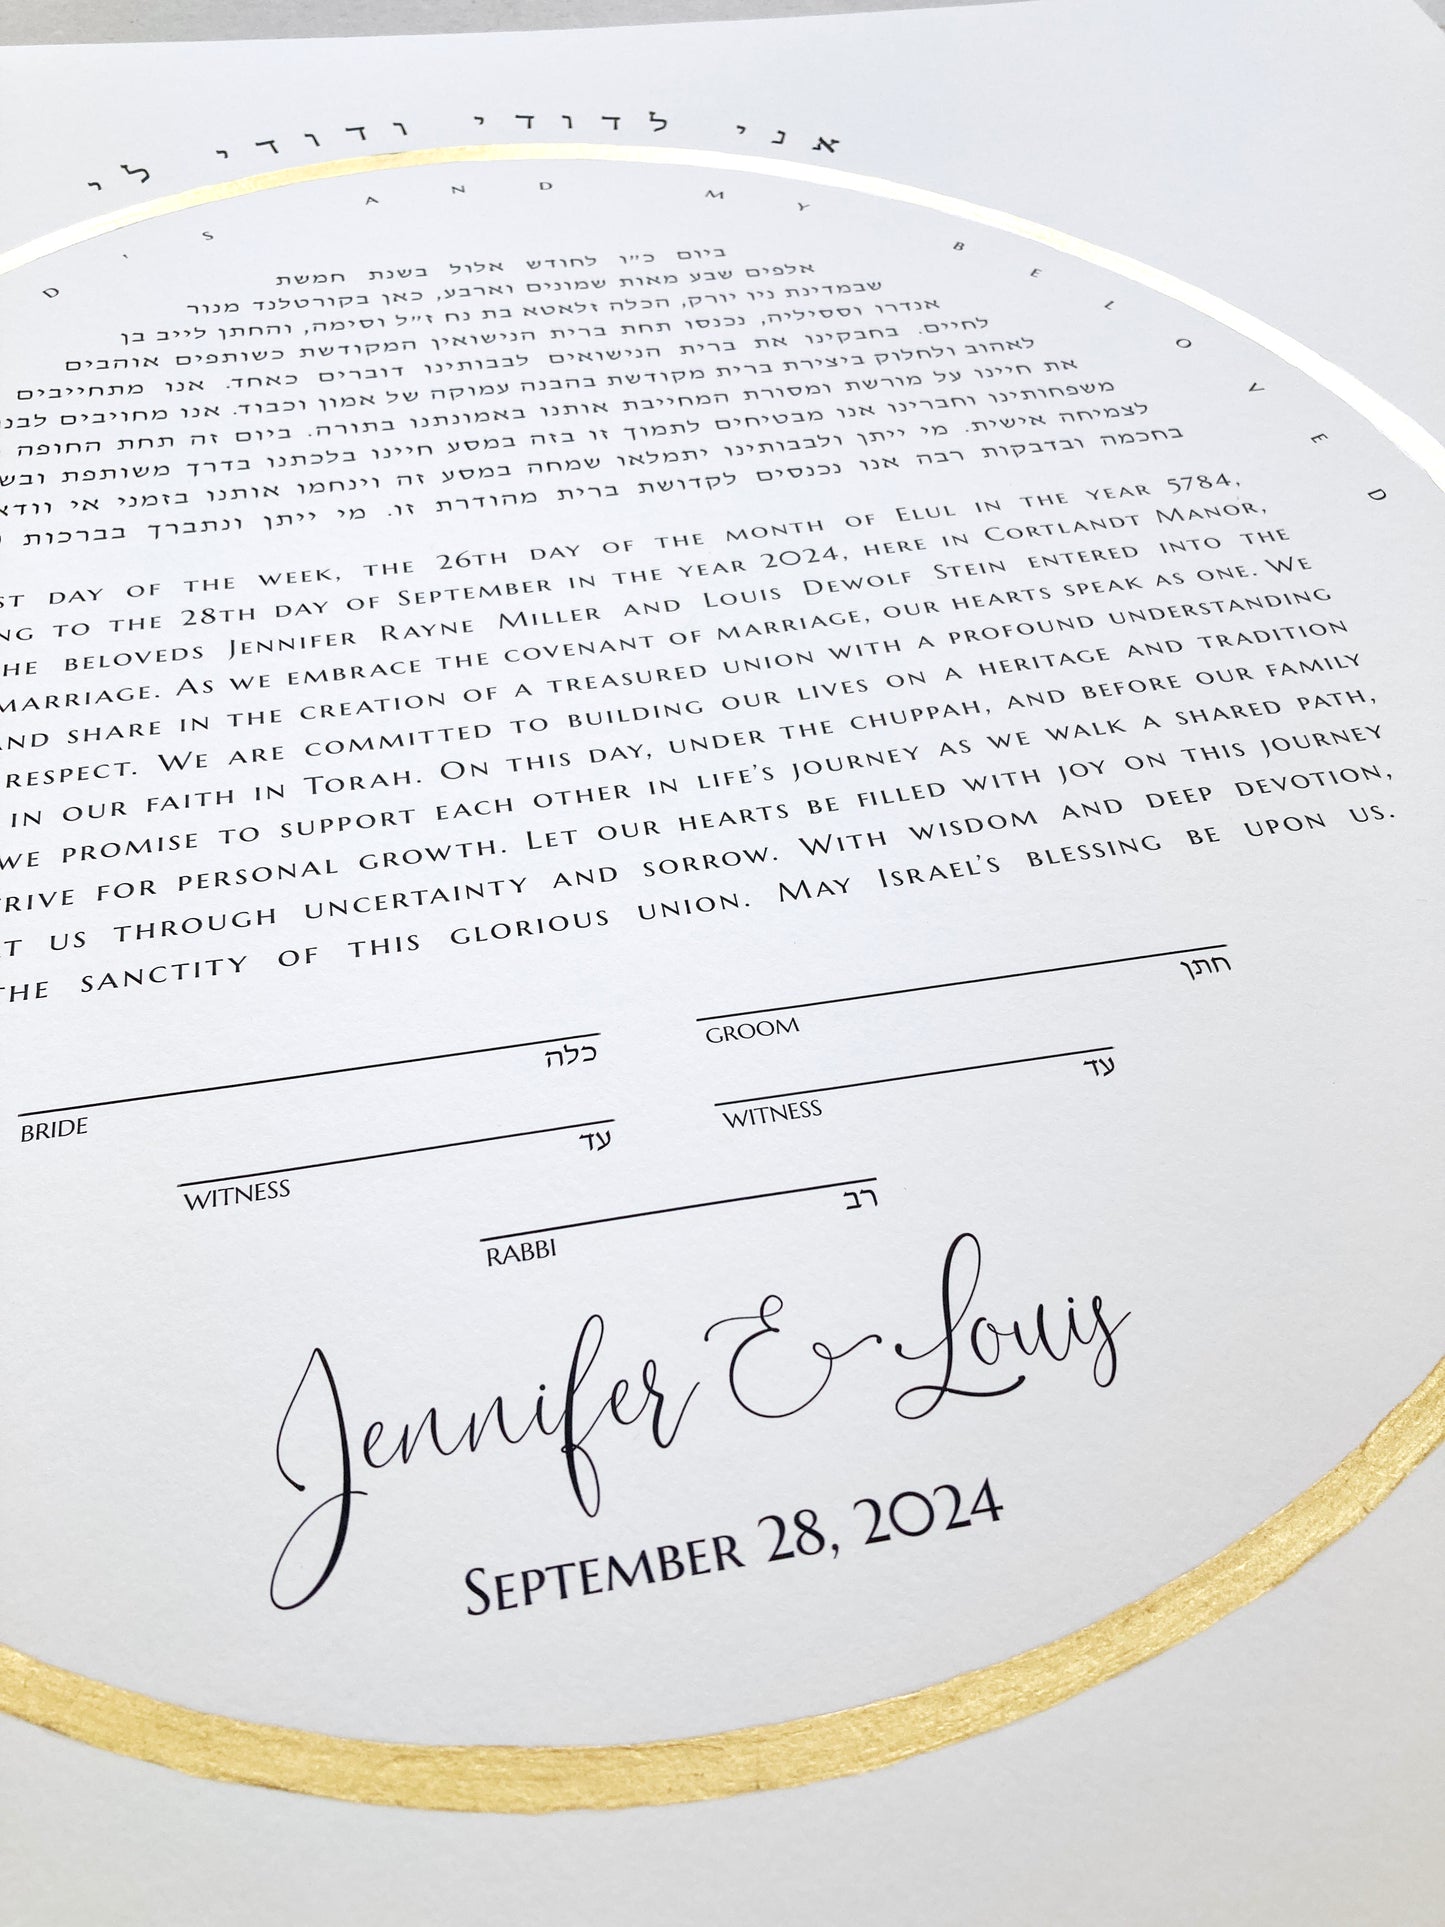 אני לדודי ודודי לי
D IS AND MY BELOVED
ביום כ״ו לחודש אלול בשנת חמשת
אלפים שבע מאות שמונים וארבע, כאן בקורטלנד מנור
שבמדינת ניו יורק, הכלה זלאטא בת נח ז״ל וסימה, והחתן לייב בן
אנדרו וססיליה, נכנסו תחת ברית הנישואין המקודשת כשותפים אוהבים
לחיים. בחבקינו את ברית הנישואים לבבותינו דוברים כאחד. אנו מתחייבים
לאהוב ולחלוק ביצירת ברית מקודשת בהבנה עמוקה של אמון וכבוד. אנו מחויבים
את חיינו על מורשת ומסורת המחייבת אותנו באמונתנו בתורה. ביום זה תחת החופה
משפחותינו וחברינו אנו מבטיחים לתמוך זו בזה במסע חיינו בלכתנו בדרך משותפת
לצמיחה אישית. מי ייתן ולבבותינו יתמלאו שמחה במסע זה וינחמו אותנו בזמני אי
בחכמה ובדבקות רבה אנו נכנסים לקדושת ברית מהודרת זו. מי ייתן ונתברך בברכות
ST DAY OF THE WEEK, THE 26TH DAY OF THE MONTH OF ELUL IN THE YEAR 5784,
NG TO THE 28TH DAY OF SEPTEMBER IN THE YEAR 2024, HERE IN CORTLANDT MANOR,
HE BELOVEDS JENNIFER RAYNE MILLER AND LOUIS DEWOLF STEIN ENTERED INTO THE
MARRIAGE. AS WE EMBRACE THE COVENANT OF MARRIAGE, OUR HEARTS SPEAK AS ONE. WE
AND SHARE IN THE CREATION OF A TREASURED UNION WITH A PROFOUND UNDERSTANDING
RESPECT. WE ARE COMMITTED TO BUILDING OUR LIVES ON A HERITAGE AND TRADITION
IN OUR FAITH IN TORAH. ON THIS DAY, UNDER THE CHUPPAH, AND BEFORE OUR FAMILY
WE PROMISE TO SUPPORT EACH OTHER IN LIFE'S JOURNEY AS WE WALK A SHARED PATH,
TRIVE FOR PERSONAL GROWTH. LET OUR HEARTS BE FILLED WITH JOY ON THIS JOURNEY
T US THROUGH UNCERTAINTY AND SORROW. WITH WISDOM AND DEEP DEVOTION,
THE SANCTITY OF THIS GLORIOUS UNION. MAY ISRAEL'S BLESSING BE UPON US.
BRIDE כלה
GROOM חתן
WITNESS עד
WITNESS עד
RABBI רב
Jennifer & Louis
SEPTEMBER 28, 2024